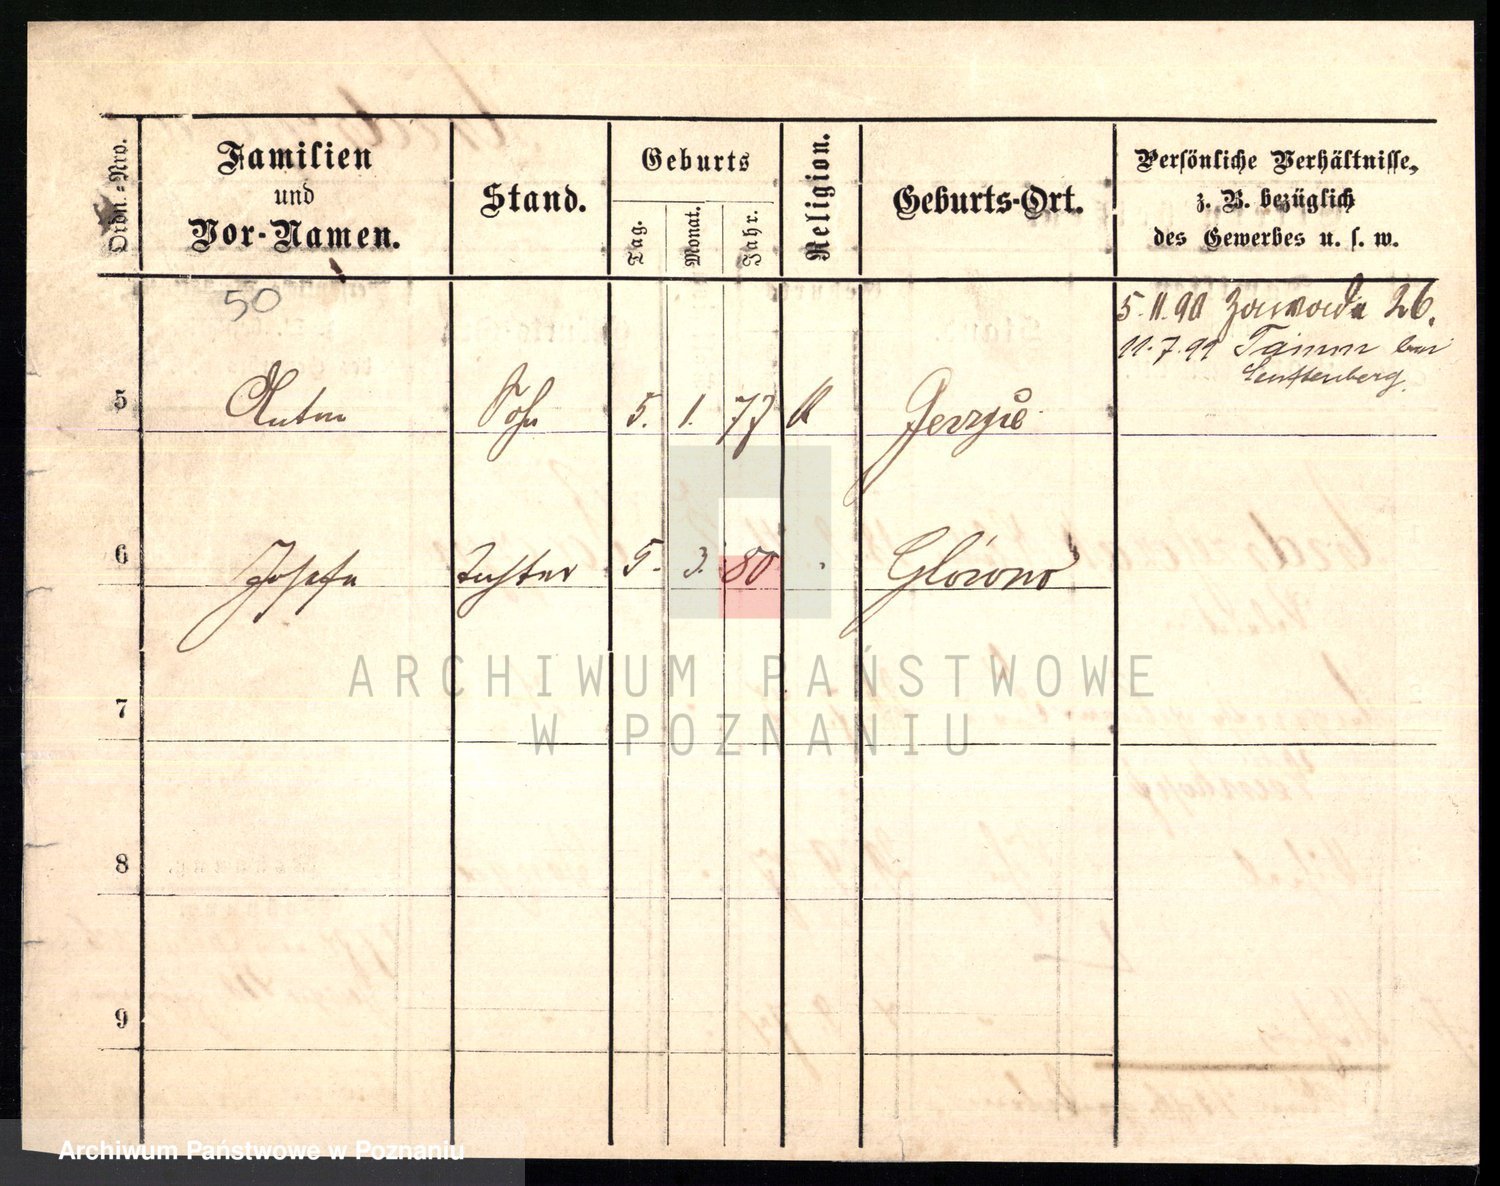 Ordn.-Nro.
Familien
und
Vor-Namen.
Stand.
Geburts
Tag.
Monat.
Jahr.
Religion.
Geburts-Ort.
Persönliche Verhältnisse,
z. B. bezüglich
des Gewerbes u. s. w.
50
5.11.90 Zawada 26.
11.7.99 Tamm bei
Senftenberg
5 Anton Sohn 5. 1. 77 K Gerzyce
6 Josefa Tochter 5. 3. 80
7
8
9
ARCHIWUM PAŃSTWOWE
W POZNANIU
Archiwum Państwowe w Poznaniu